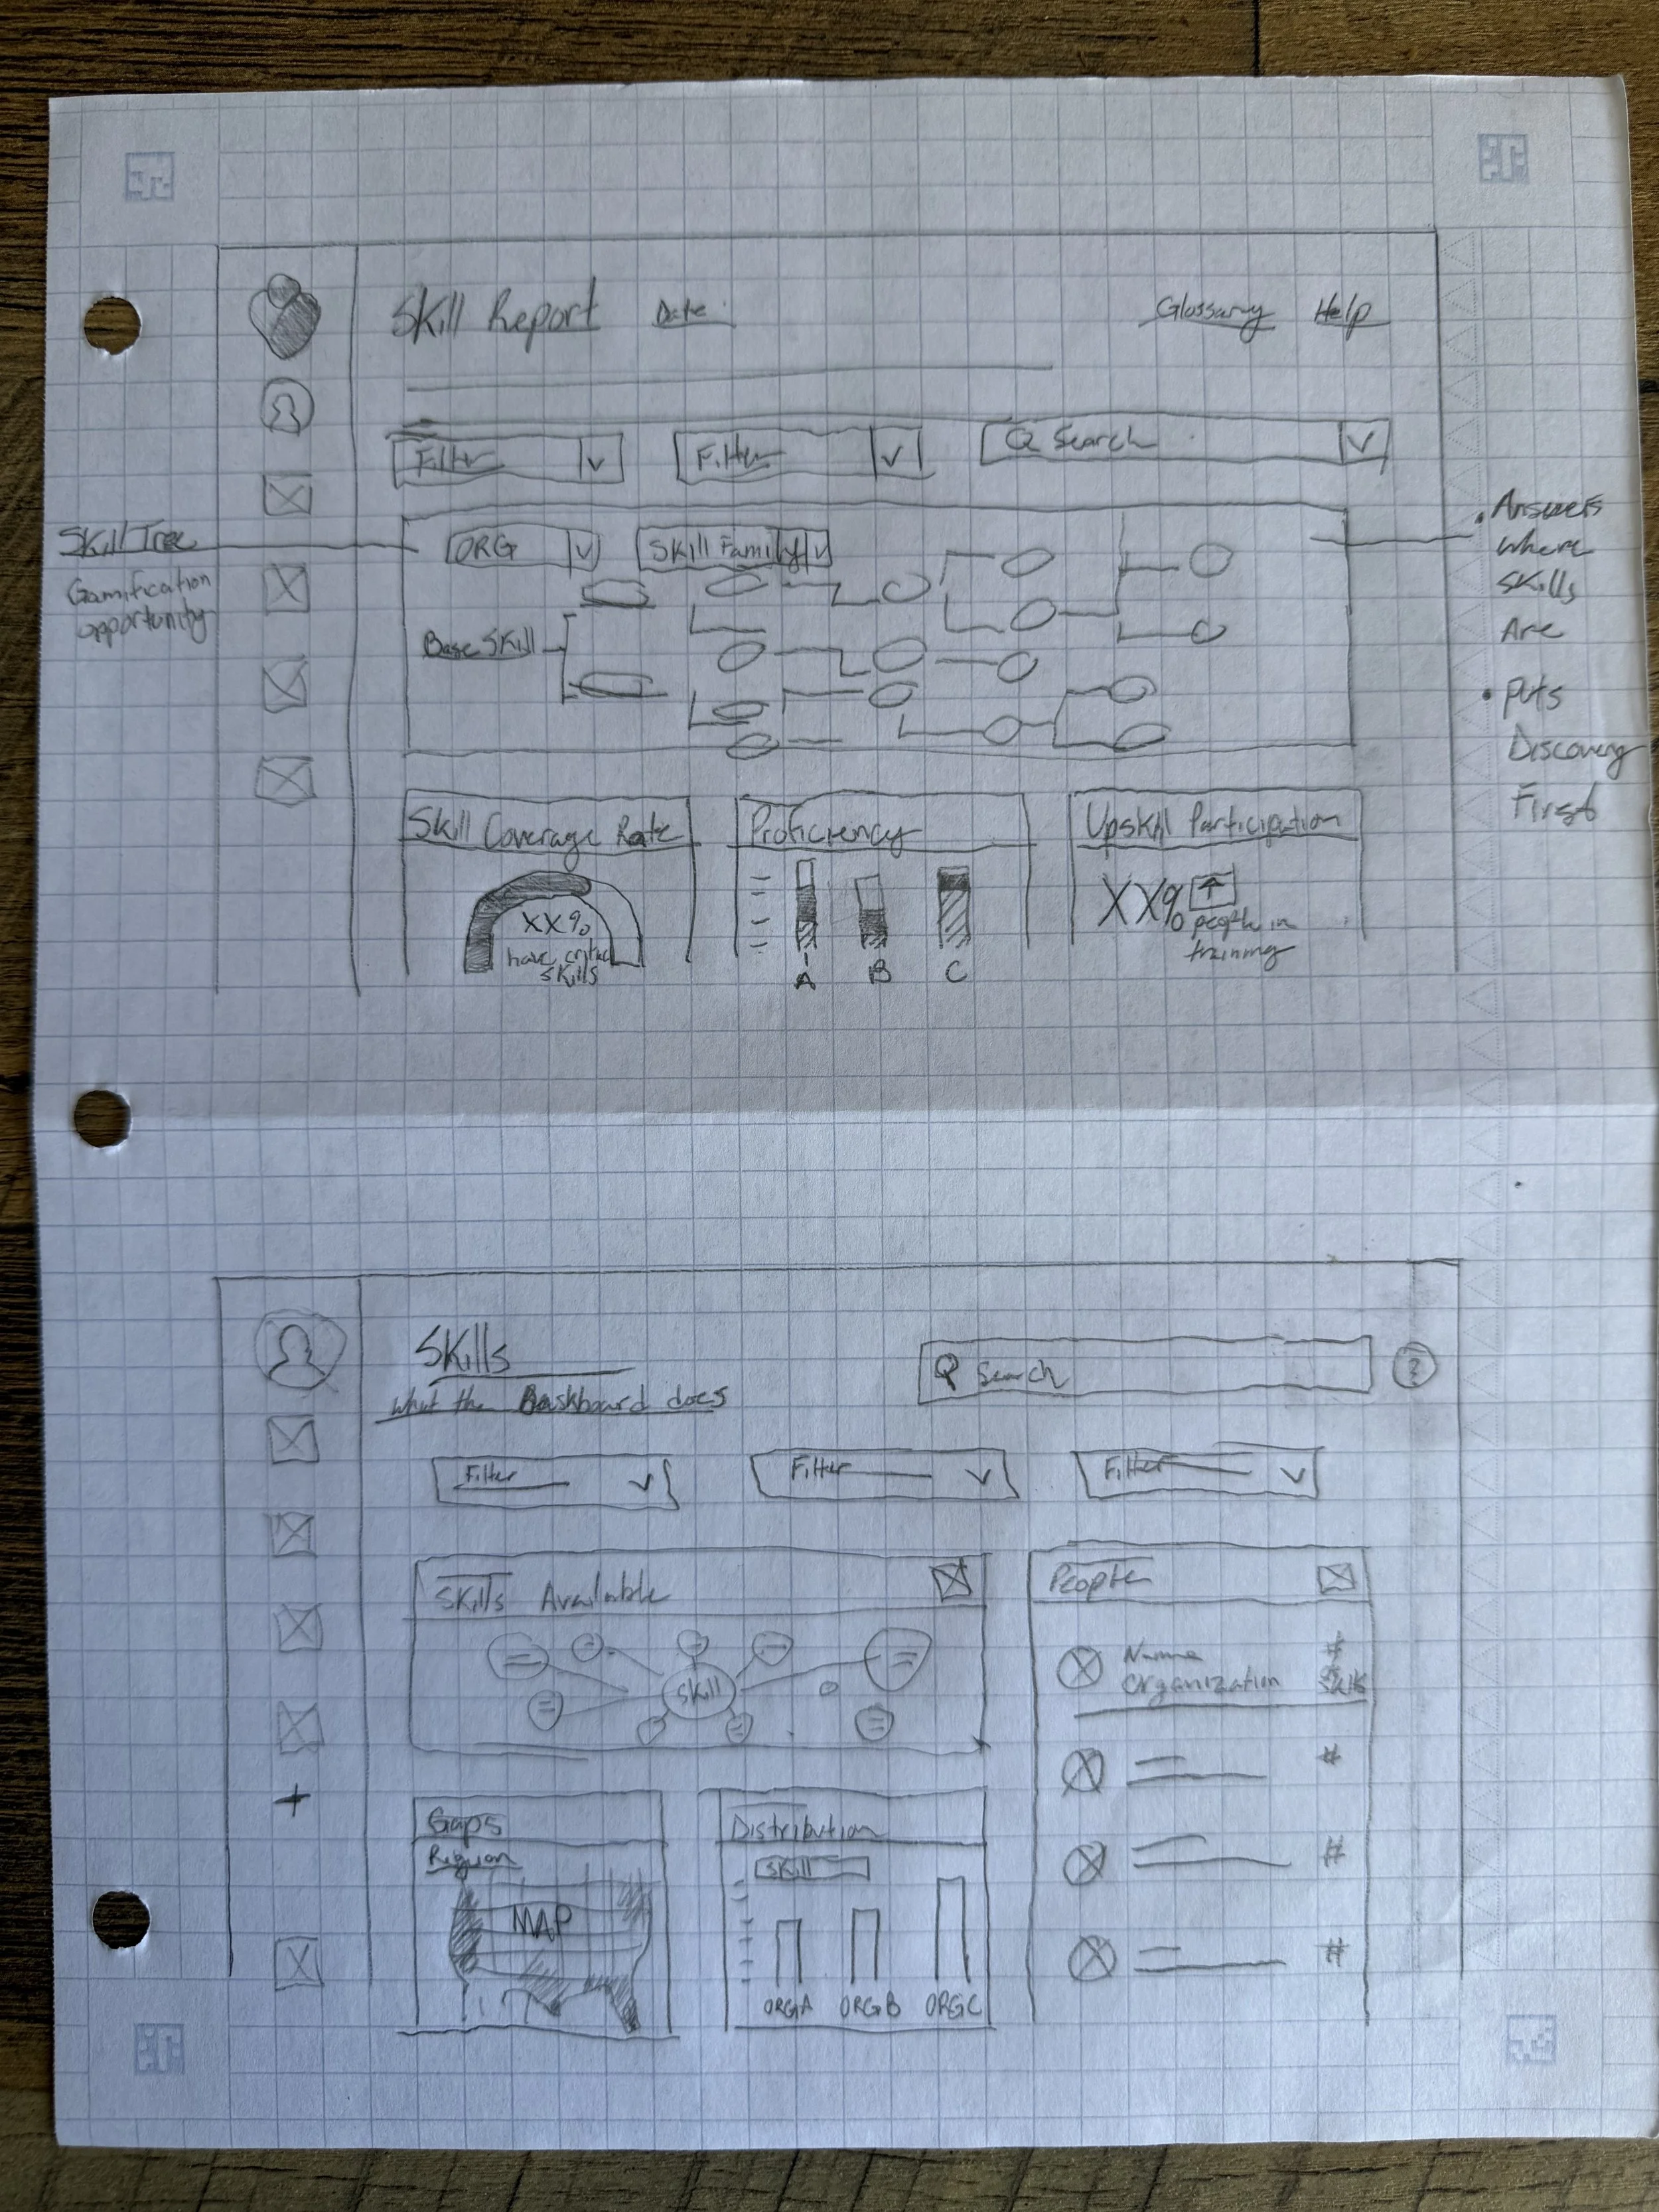 Skill Report Date
Glossary Help
Filter v
Filter v
Q Search v
Skill Tree
Gamification
opportunity
ORG v
Skill Family v
Base Skill
• Answers
where
skills
Are
• Puts
Discovery
First
Skill Coverage Rate
XX%
skills
Proficiency
A B C
Upskill Participation
XX% ↑
people in
training
Skills
Q Search
?
What the Dashboard does
Filter v
Filter v
Filter v
Skills Available
Skill
People
Name
Organization
#
Skills
#
#
#
+
Gaps
Region
MAP
Distribution
Skill
ORG A ORG B ORG C